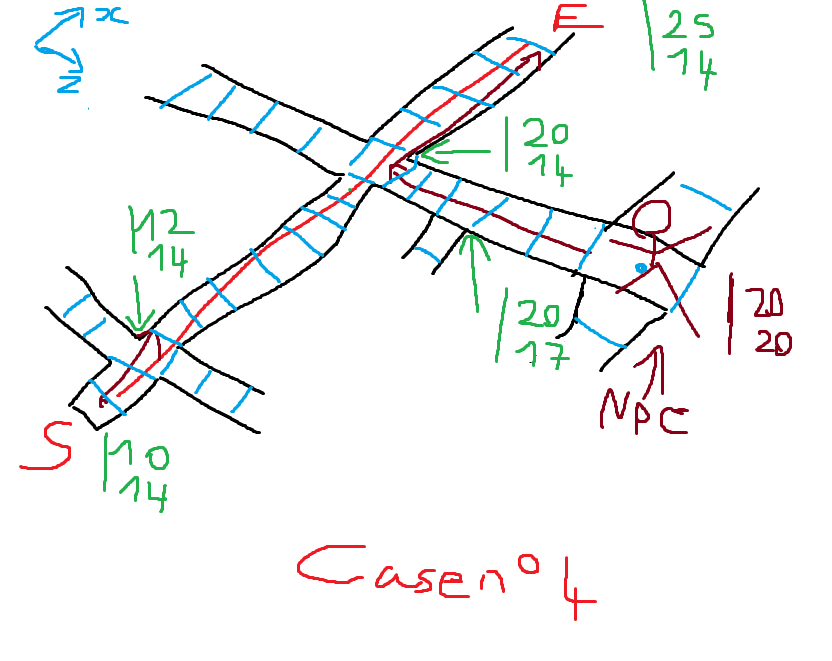 x
Z
E
25
14
20
14
12
14
20
17
20
20
NPC
S
10
14
Case n° 4